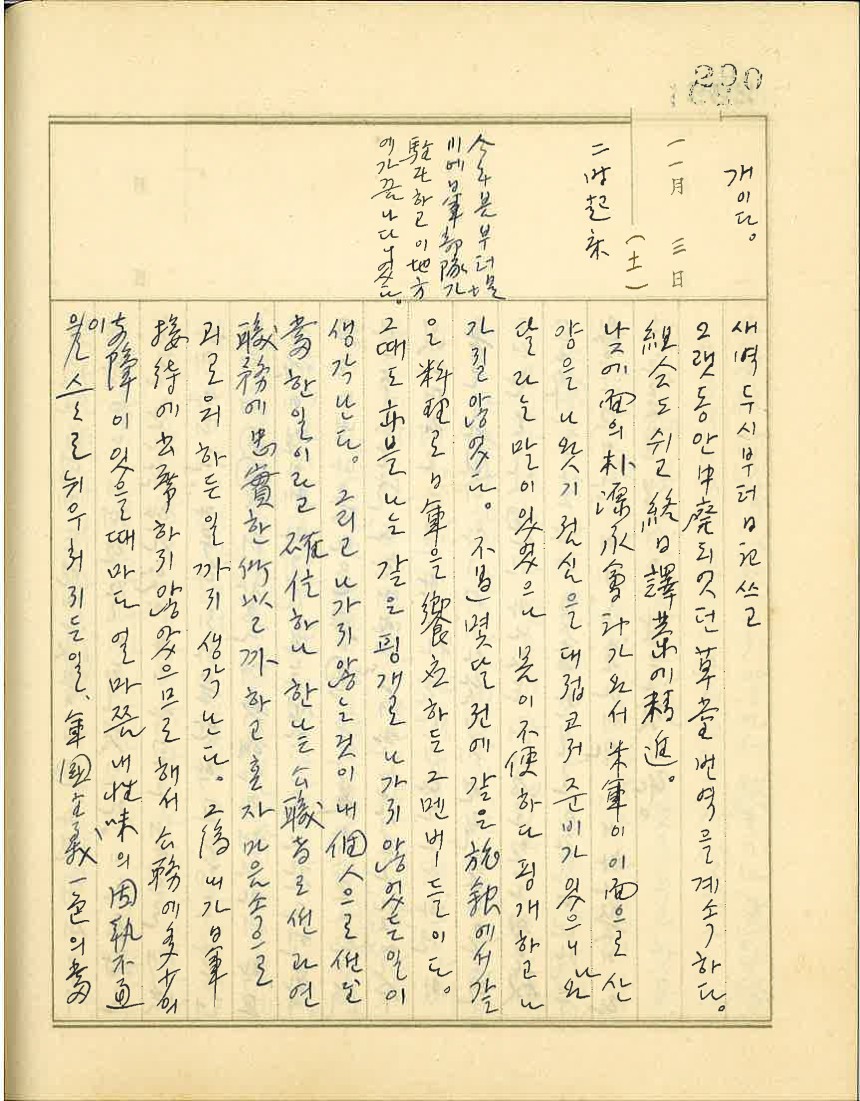 290
개이다。
一一月 三日
(土)
二時起床
今年 봄부터 물
비에 日軍 部隊가
駐在하고 이 地方
에 가끔 나다녔다。
새벽 두시부터 日記 쓰고
오랫동안 中廢되였던 草堂 번역을 계속하다。
組合도 쉬고 終日 譯業에 精進。
낮에 面의 朴源永會 다가와서 米軍이 이 面으로 산
양을 나왓기 점심을 대접고저 준비가 있으니 나와
달라는 말이 있었으나 몸이 不便하다 핑개하고 나
가질 않었다。 不過 몇달 전에 같은 旅館에서 같
은 料理로 日軍을 饗応하든 그 멘버들이다。
그때도 하불나는 같은 핑개로 나가지 않었든 일이
생각난다。 그리고 나가지 않는 것이 내 個人으로 썬 일
當한 일이라고 確信하나 한낱 公職者로썬 과연
職務에 忠實한 것일까 하고 혼자 마음속으로
괴로워 하든 일까지 생각난다。 그後 내가 日軍
接待에 出席하지 않었으므로 해서 公務에 多少의
支障이 있을때마다 얼마쯤 내 性味의 固執不通
이 스스로 뉘우처지든 일、 軍國主義 一色의 當